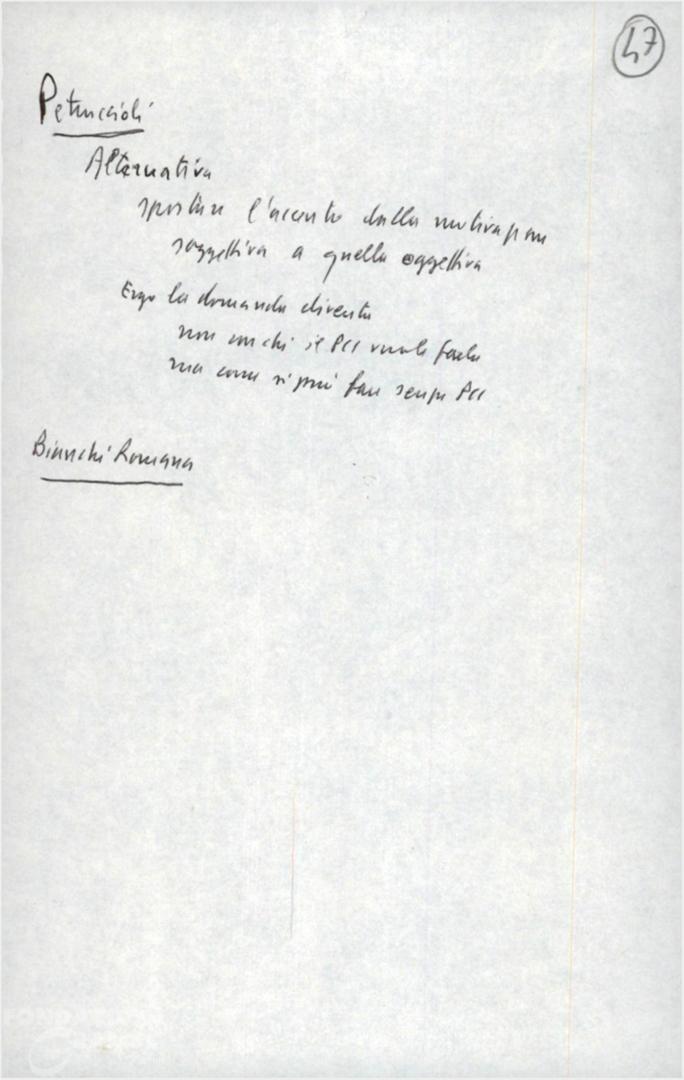 47
Petruccioli
Alternativa
spostare l'accento dalla motivazione
soggettiva a quella oggettiva
Ergo la domanda diventa
non con chi il PCI vuole farla
ma come si può fare senza PCI
Bianchi Romana
FONDAZIONE